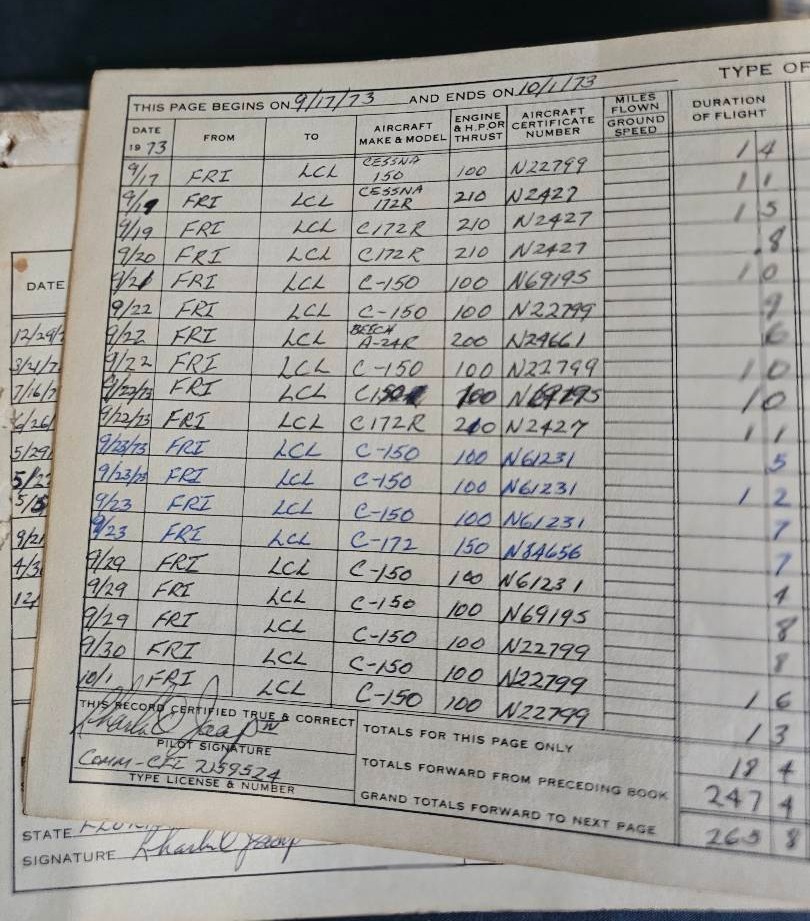 THIS PAGE BEGINS ON 9/17/73 AND ENDS ON 10/1/73 TYPE OF
DATE 19 73 FROM TO AIRCRAFT MAKE & MODEL ENGINE & H.P. OR THRUST AIRCRAFT CERTIFICATE NUMBER MILES FLOWN GROUND SPEED DURATION OF FLIGHT
9/17 FRI LCL CESSNA 150 100 N22799 1 4
9/19 FRI LCL CESSNA 172R 210 N2427 1 1
9/19 FRI LCL C172R 210 N2427 1 5
9/20 FRI LCL C172R 210 N2427 .8
9/21 FRI LCL C-150 100 N69195 1 0
9/22 FRI LCL C-150 100 N22799 9
9/22 FRI LCL BEECH A-24R 200 N29661 6
9/22 FRI LCL C-150 100 N22799 1 0
9/22/73 FRI LCL C150 100 N69195 1 0
9/22/73 FRI LCL C172R 210 N2427 1 1
9/23/73 FRI LCL C-150 100 N61231 5
9/23/73 FRI LCL C-150 100 N61231 1 2
9/23 FRI LCL C-150 100 N61231 7
9/23 FRI LCL C-172 150 N84656 7
9/29 FRI LCL C-150 100 N61231 4
9/29 FRI LCL C-150 100 N69195 8
9/29 FRI LCL C-150 100 N22799 8
9/30 FRI LCL C-150 100 N22799 1 6
10/1 FRI LCL C-150 100 N22799 1 3
THIS RECORD CERTIFIED TRUE & CORRECT TOTALS FOR THIS PAGE ONLY 18 4
PILOT SIGNATURE TOTALS FORWARD FROM PRECEDING BOOK 247 4
COMM-CFI 2159524
TYPE LICENSE & NUMBER GRAND TOTALS FORWARD TO NEXT PAGE 265 8
DATE
12/29/
3/21/7
7/16/7
6/26/
5/29/
5/27
5/5
9/21
4/3
12/
STATE FLORIDA
SIGNATURE